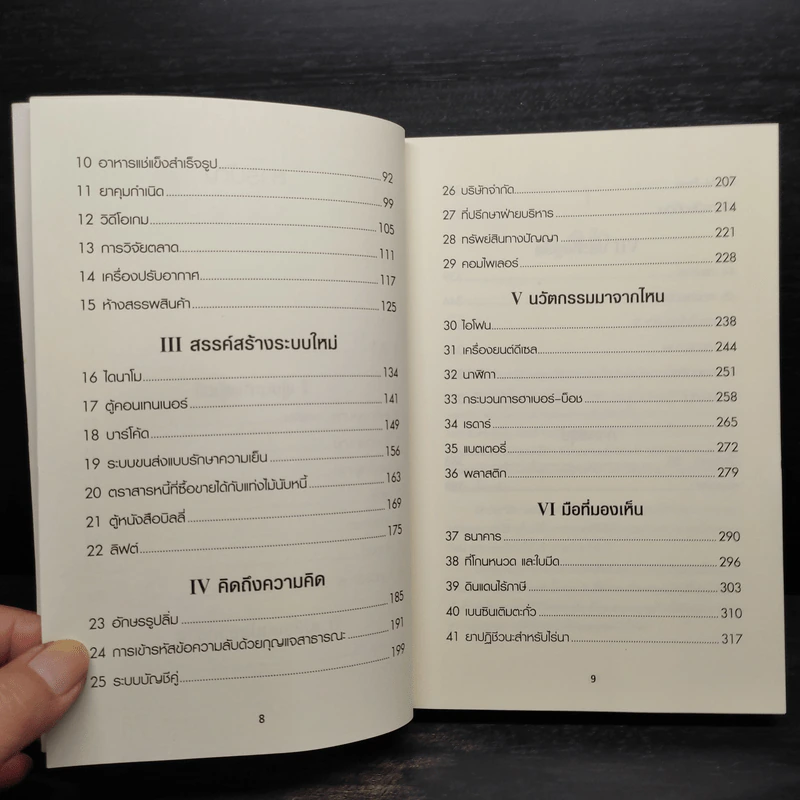 10 อาหารแช่แข็งสำเร็จรูป 92
11 ยาคุมกำเนิด 99
12 วิดีโอเกม 105
13 การวิจัยตลาด 111
14 เครื่องปรับอากาศ 117
15 ห้างสรรพสินค้า 125
III สรรค์สร้างระบบใหม่
16 ไดนาโม 134
17 ตู้คอนเทนเนอร์ 141
18 บาร์โค้ด 149
19 ระบบขนส่งแบบรักษาความเย็น 156
20 ตราสารหนี้ที่ซื้อขายได้กับแท่งไม้นับหนี้ 163
21 ตู้หนังสือบิลลี่ 169
22 ลิฟต์ 175
IV คิดถึงความคิด
23 อักษรรูปลิ่ม 185
24 การเข้ารหัสข้อความลับด้วยกุญแจสาธารณะ 191
25 ระบบบัญชีคู่ 199
8
26 บริษัทจำกัด 207
27 ที่ปรึกษาฝ่ายบริหาร 214
28 ทรัพย์สินทางปัญญา 221
29 คอมไพเลอร์ 228
V นวัตกรรมมาจากไหน
30 ไอโฟน 238
31 เครื่องยนต์ดีเซล 244
32 นาฬิกา 251
33 กระบวนการฮาเบอร์-บ็อช 258
34 เรดาร์ 265
35 แบตเตอรี่ 272
36 พลาสติก 279
VI มือที่มองเห็น
37 ธนาคาร 290
38 ที่โกนหนวด และใบมีด 296
39 ดินแดนไร้ภาษี 303
40 เบนซินเติมตะกั่ว 310
41 ยาปฏิชีวนะสำหรับไร่นา 317
9